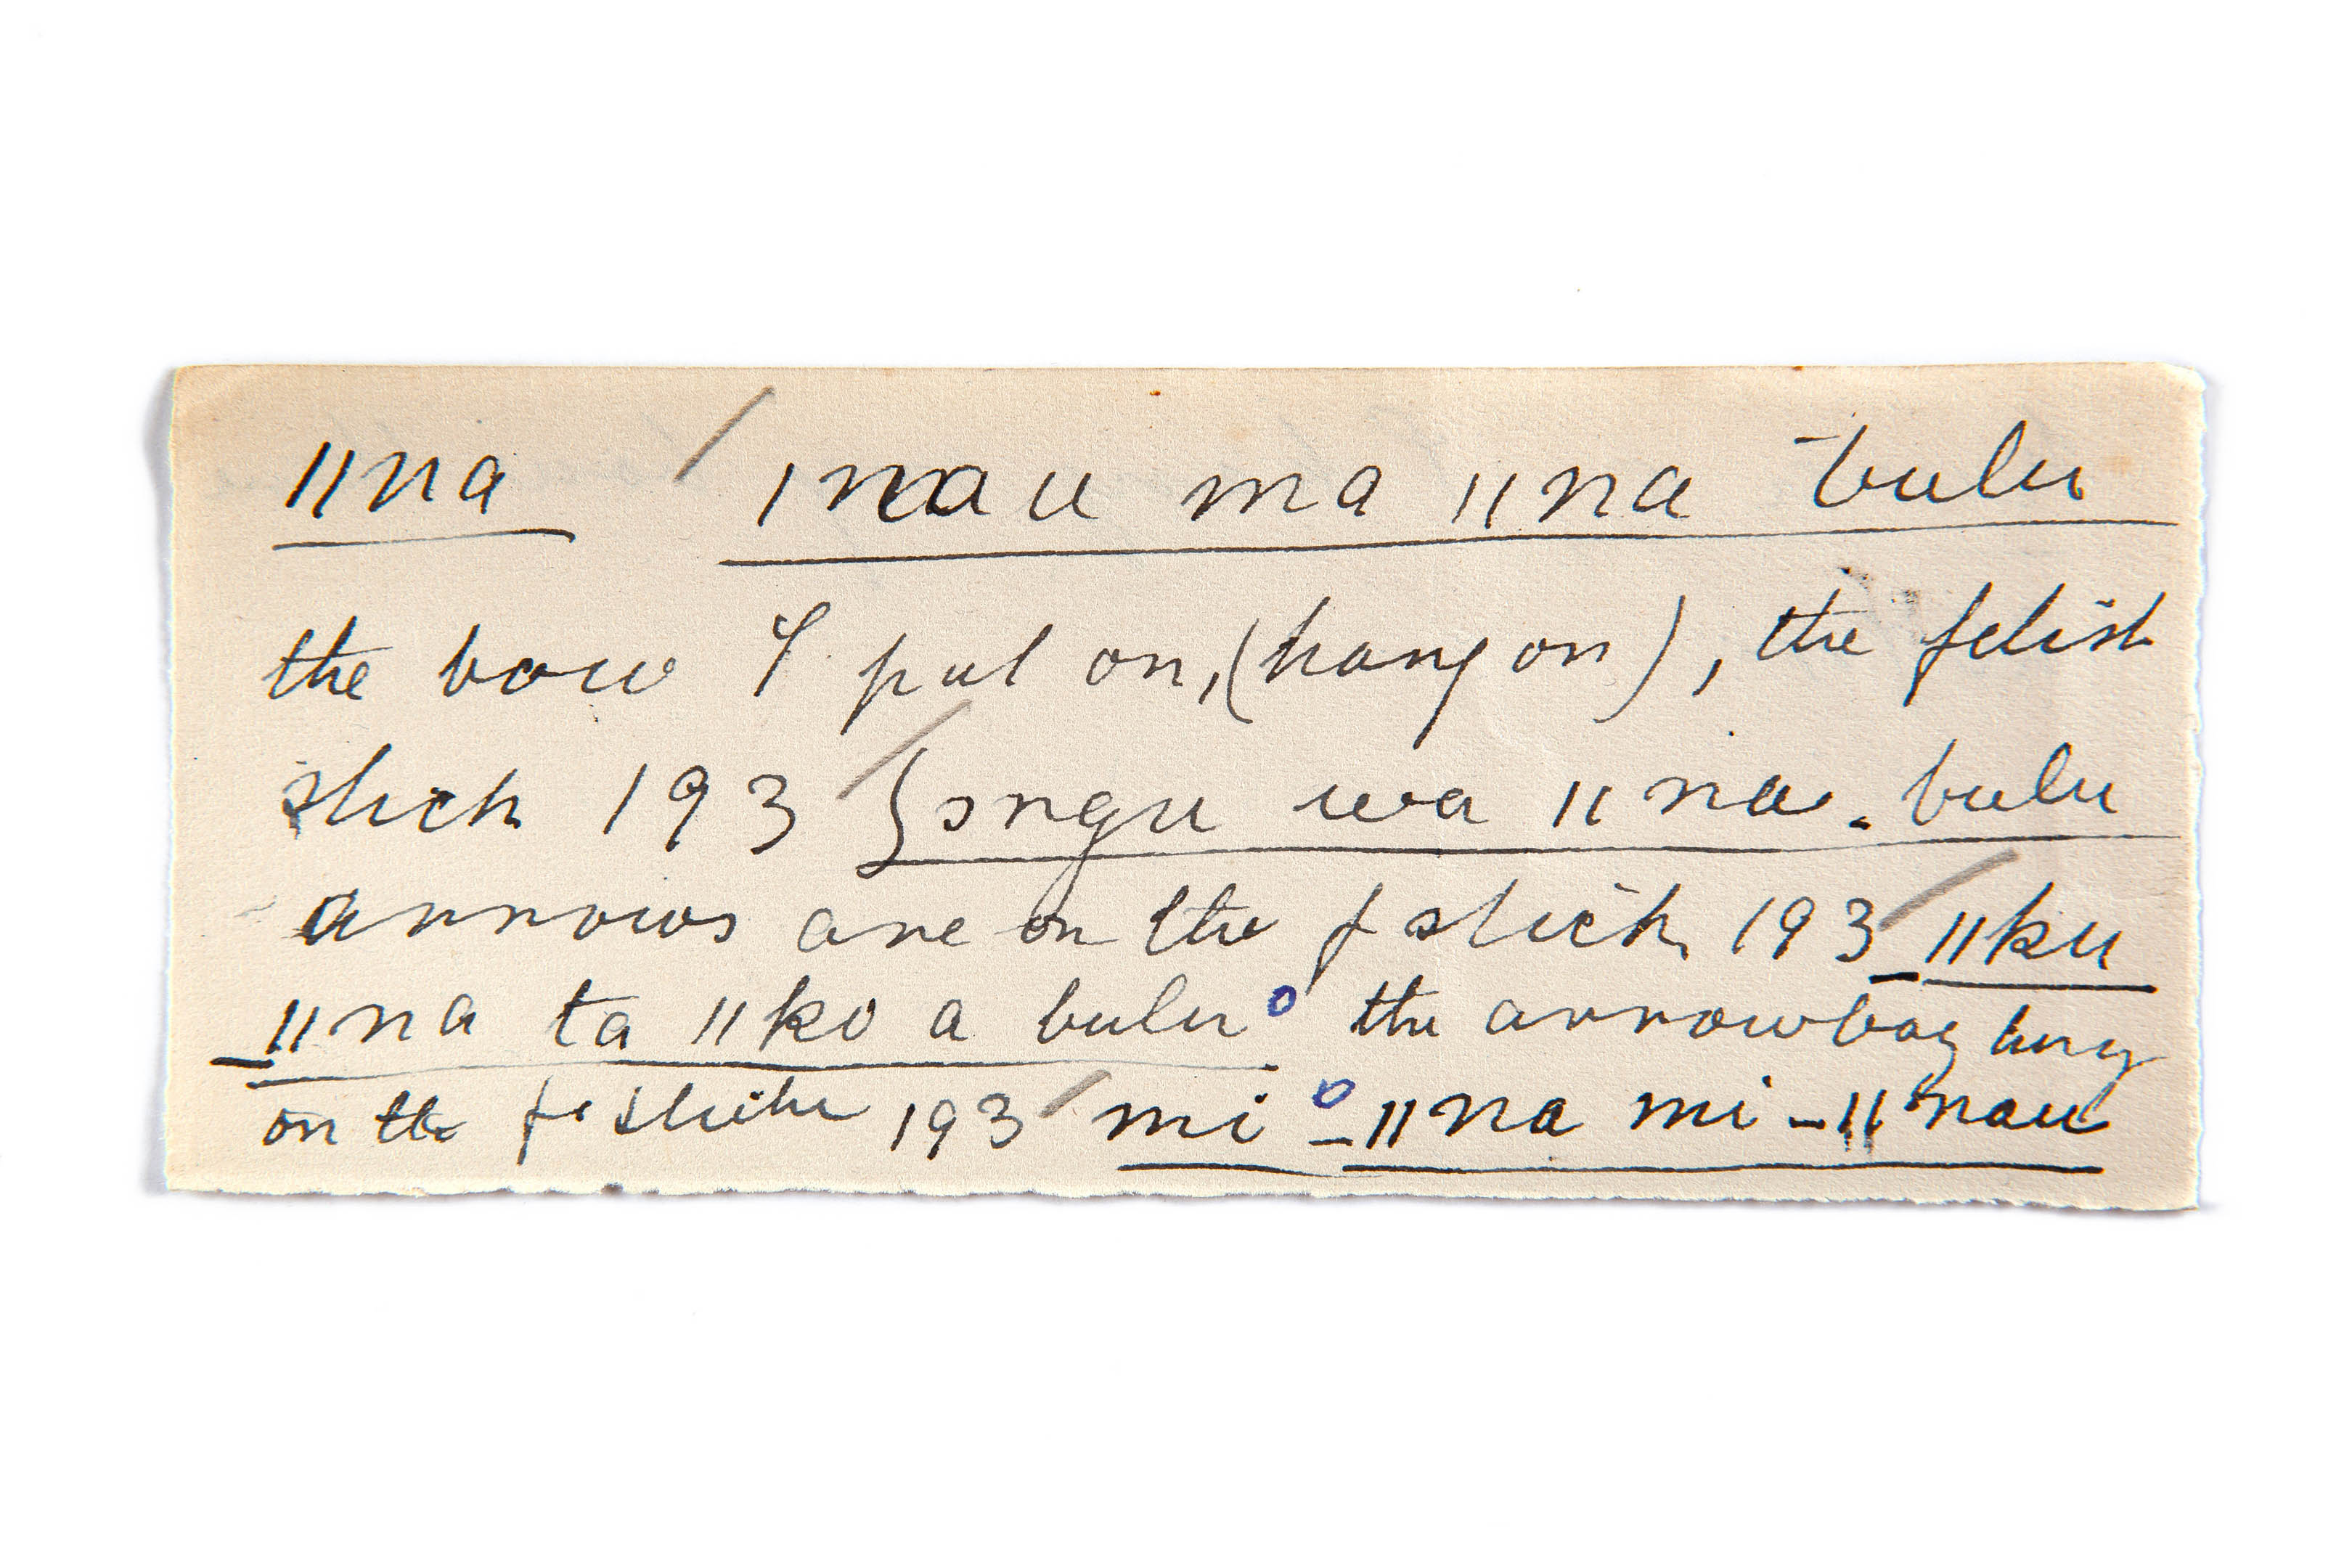 ǁna / ǀnau ma ǁna bulu
the bow I put on, (hang on), the fetish
stick 193 / ʃongu wa ǁna. bulu
arrows are on the f stick 193 / ǁku
ǁna ta ǁko a bulu° the arrowbag hang
on the f. stick 193 / mi° -ǁna mi -ǁnau